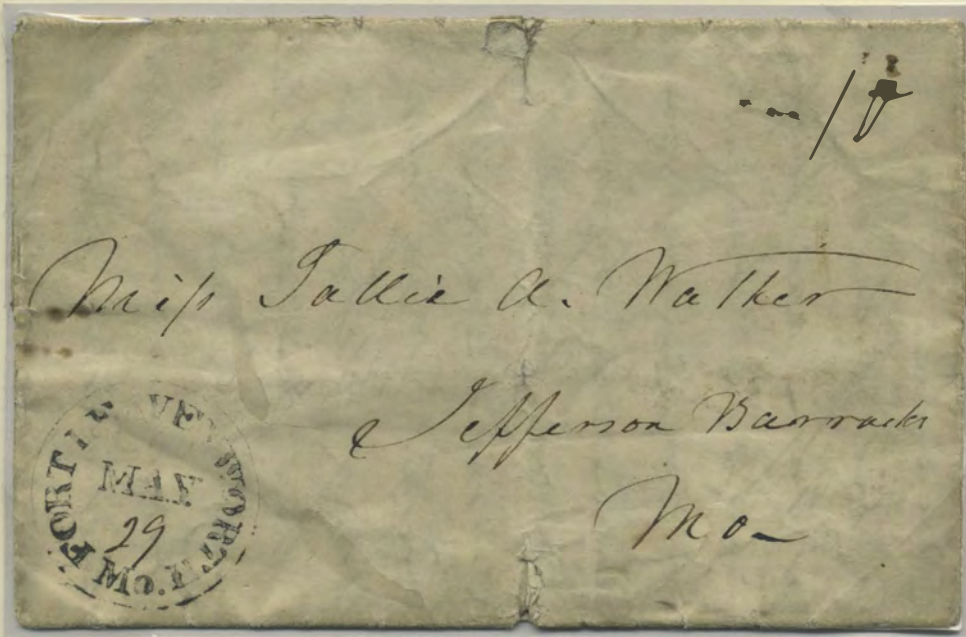 Miss Sallie A. Walker
Jefferson Barracks
Mo
FORT LEAVENWORTH MO.
MAY
29